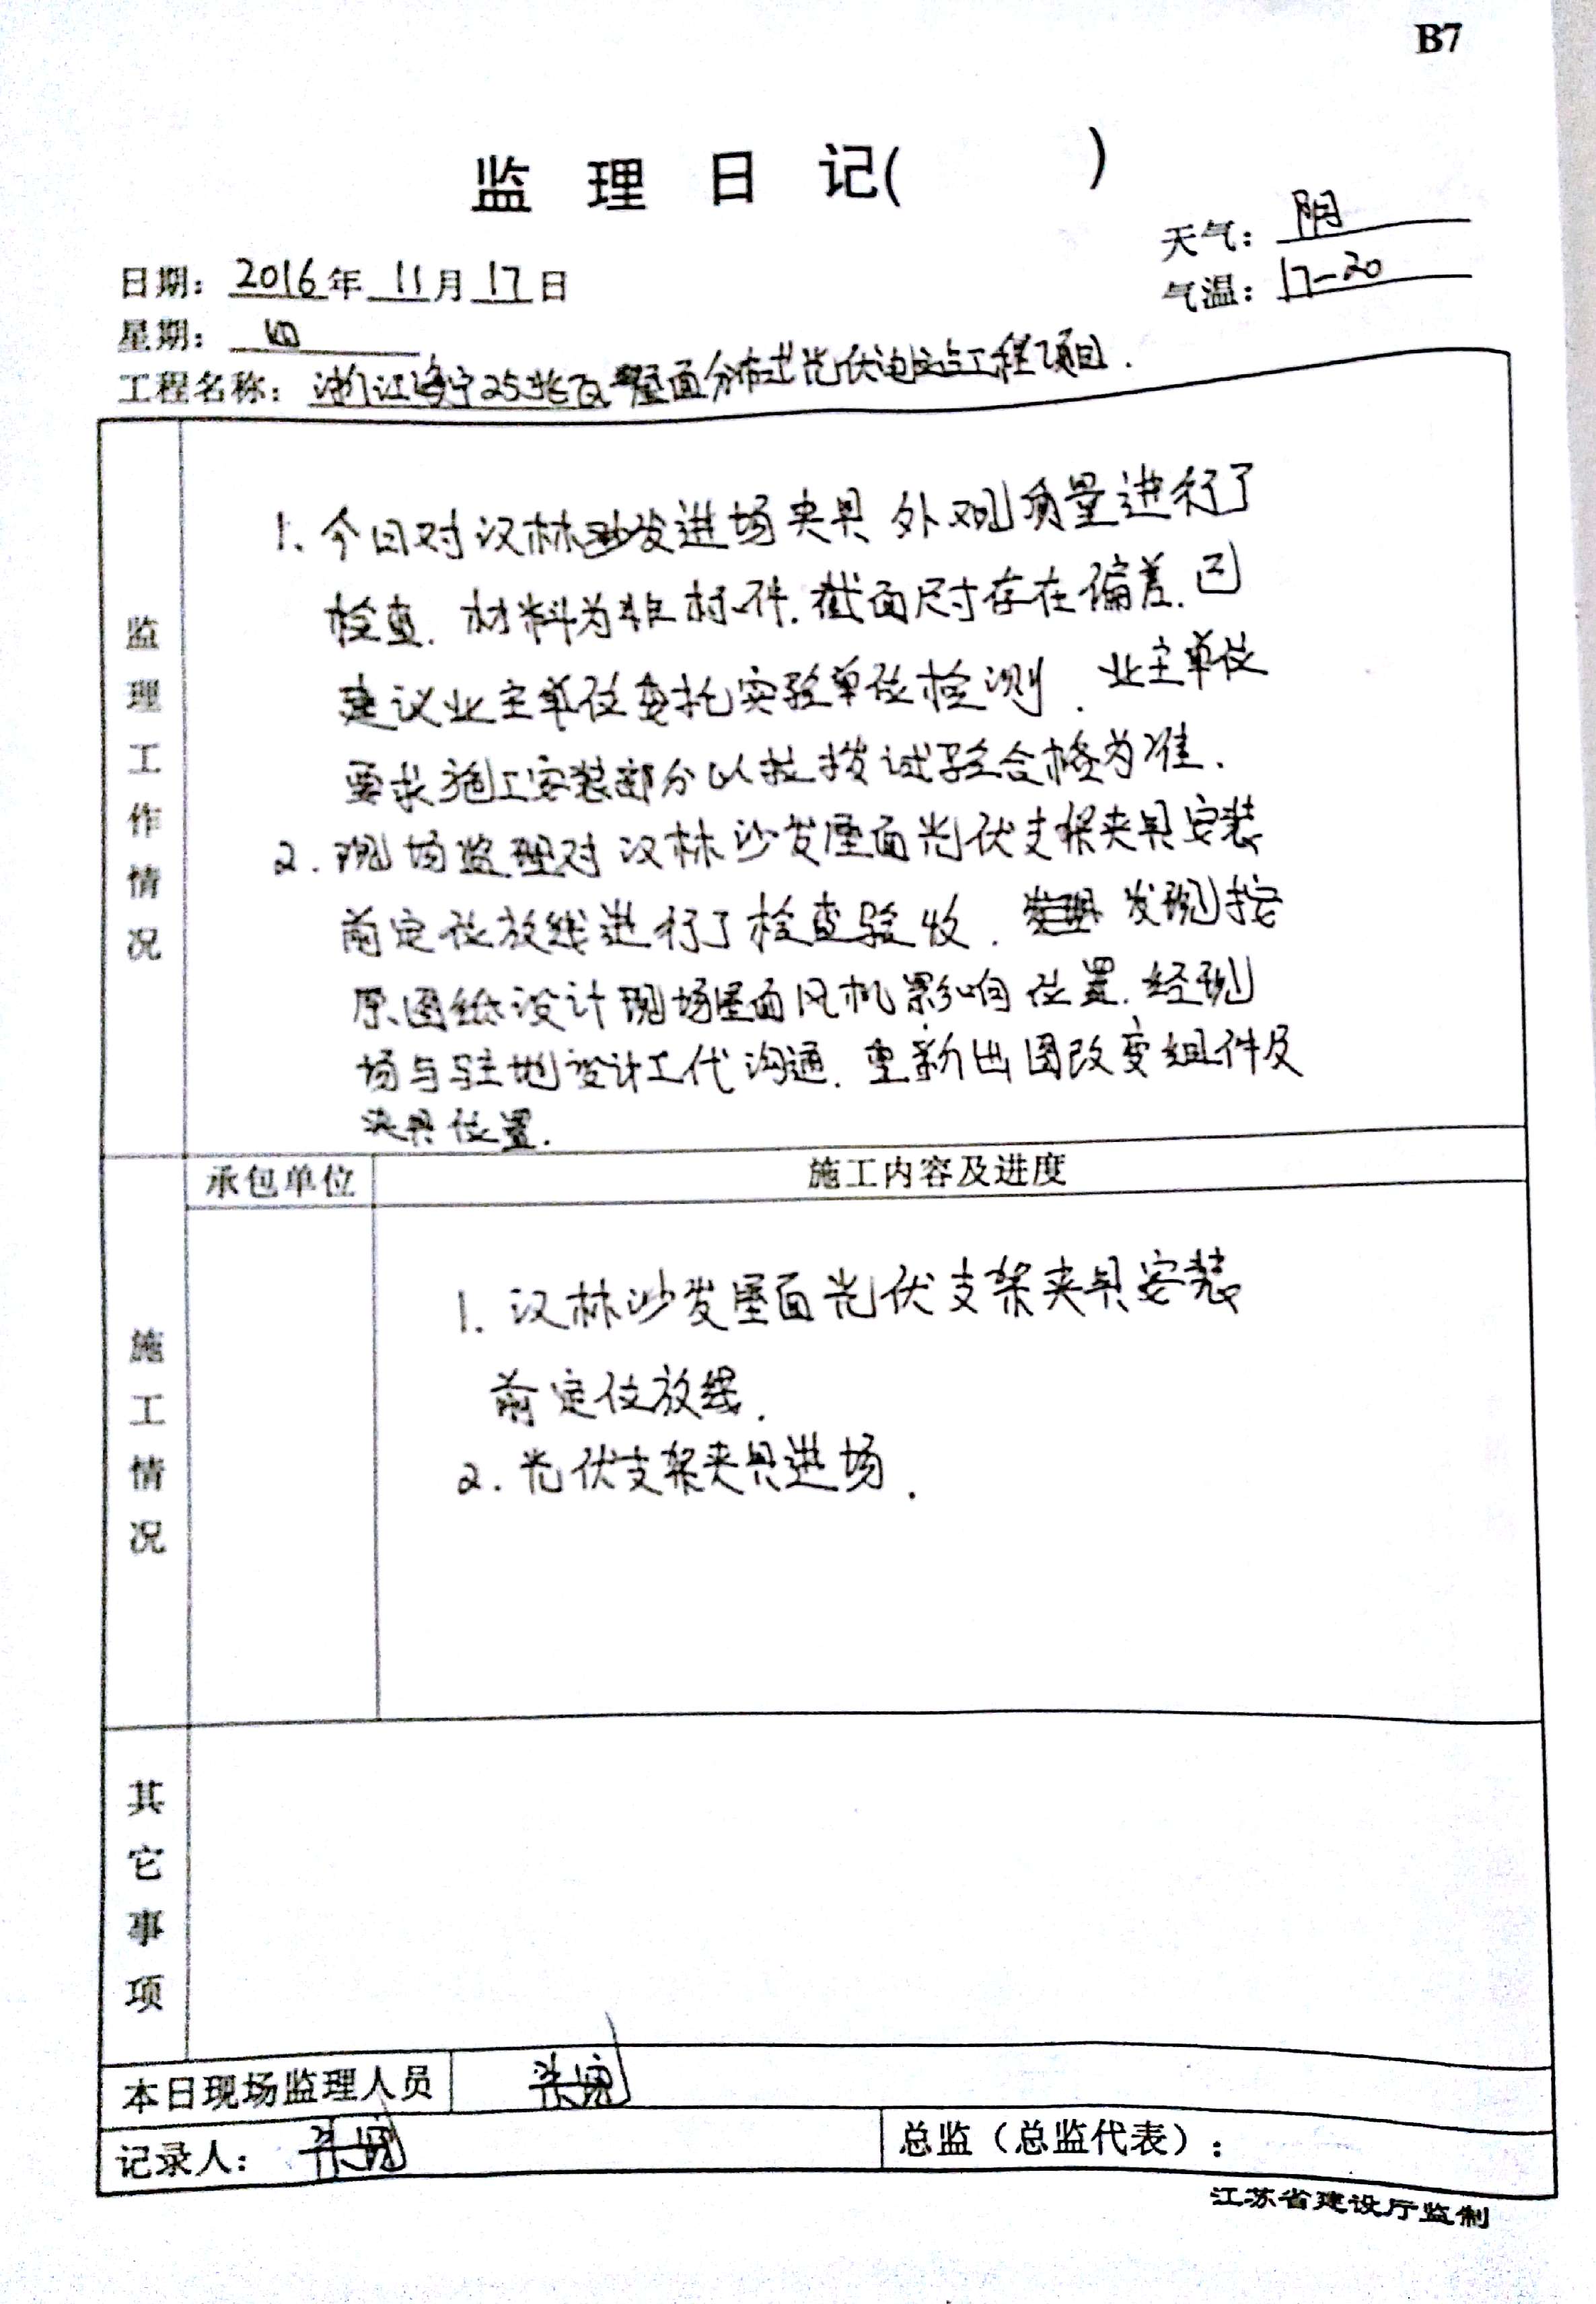 B7
监理日记( )
天气：阴
日期：2016年11月17日
气温：17-20
星期：四
工程名称：浙江海宁25兆瓦屋面分布式光伏电站工程项目.
监理工作情况
1.今日对汉林沙发进场夹具外观质量进行了
检查.材料为非标件.截面尺寸存在偏差.已
建议业主单位委托实验单位检测.业主单位
要求施工安装部分以拉拨试验合格为准.
2.现场监理对汉林沙发屋面光伏支架夹具安装
前定位放线进行了检查验收.发现按
原图纸设计现场屋面风机影响位置.经现
场与驻地设计工代沟通.重新出图改变组件及
夹具位置.
承包单位 施工内容及进度
施工情况
1.汉林沙发屋面光伏支架夹具安装
前定位放线.
2.光伏支架夹具进场.
其它事项
本日现场监理人员
记录人： 总监（总监代表）：
江苏省建设厅监制